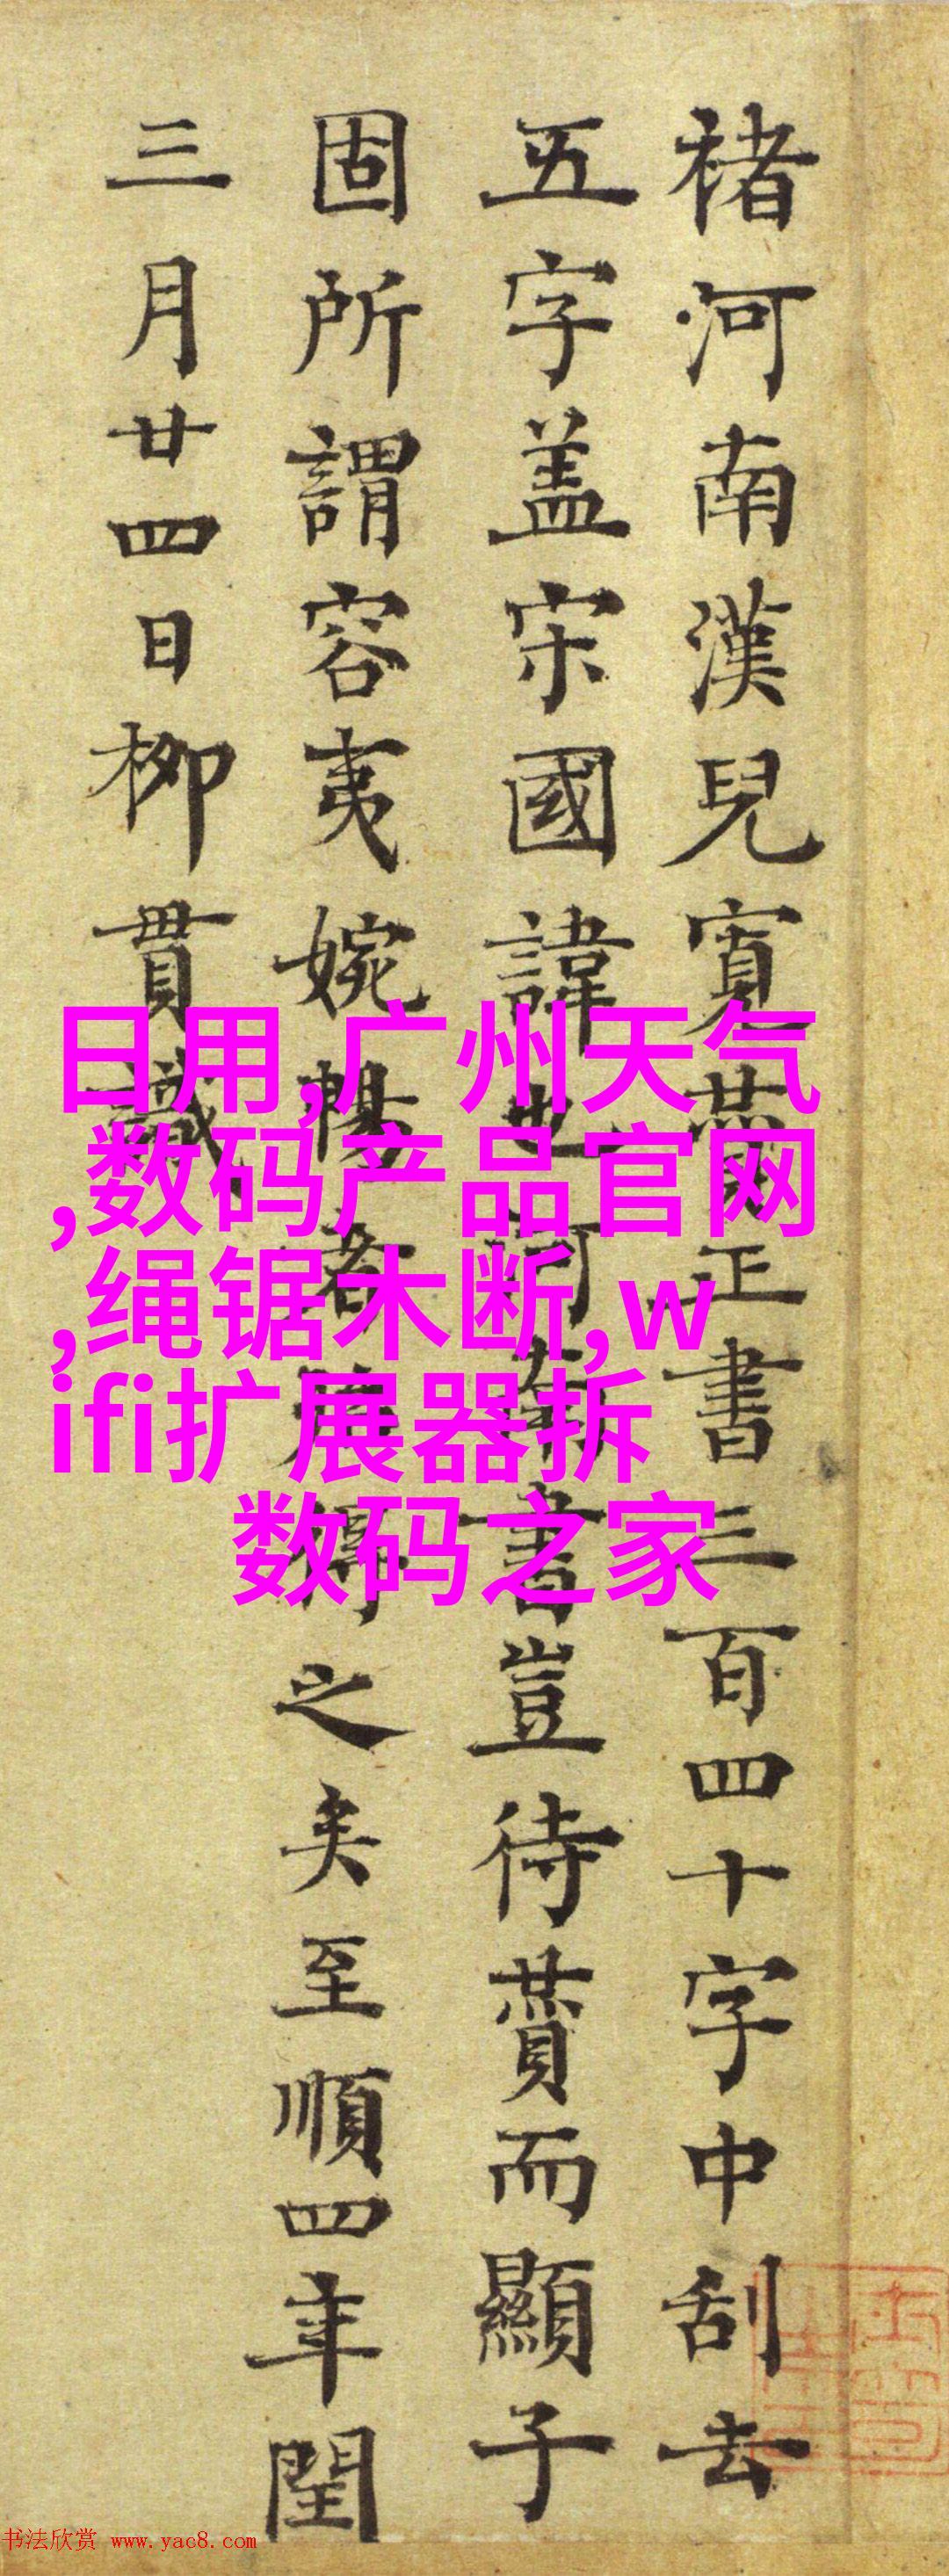 褚河南漢兒寬賛正書三百四十字中刮去
五字盖宋國諱也河南書豈待賛而顯子
固所謂容夷婉暢者庶得之矣至順四年閏
三月廿四日柳貫識
日用,广州天气
,数码产品官网
,绳锯木断,w
ifi扩展器拆
数码之家
书法欣赏 www.yac8.com